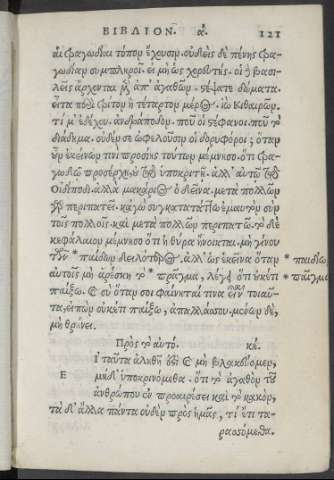 ΒΙΒΛΙΟΝ. α. 121
αἱ τραγῳδίαι τόπον ἔχουσιν. οὐδεὶς δὲ πένης τρα-
γῳδίαν συμπληροῖ. εἰ μὴ ὡς χορευτής. οἱ δὲ βασι-
λεῖς ἄρχονται μὲν ἀπ' ἀγαθῶν. στέψατε δώματα.
εἶτα περὶ τρίτον ἢ τέταρτον μέρος. ἰὼ Κιθαιρών.
τί μ' ἐδέχου. ἀνδράποδον. ποῦ οἱ στέφανοι. ποῦ τὸ
διάδημα. οὐδέν σε ὠφελοῦσιν οἱ δορυφόροι; ὅταν
οὖν ἐκείνων τινὶ προσίῃς τούτων μέμνησο. ὅτι τρα-
γῳδῷ προσέρχῃ. οὐ τῷ ὑποκριτῇ. ἀλλ' αὐτῷ τῷ
Οἰδίποδι. ἀλλὰ μακάριος ὁ δεῖνα. μετὰ πολλῶν
γὰρ περιπατεῖ. κἀγὼ συγκατατάττω ἐμαυτὸν σὺν
τοῖς πολλοῖς. καὶ μετὰ πολλῶν περιπατῶ. τὸ δὲ
κεφάλαιον μέμνησο ὅτι ἡ θύρα ἤνοικται. μὴ γίνου
τῶν * παίδων δειλότερος. ἀλλ' ὡς ἐκεῖνα ὅταν * παιδίων
αὐτοῖς μὴ ἀρέσκῃ τὸ * πρᾶγμα, λέγει ὅτι οὐκέτι * παῖγμα
παίξω. καὶ σὺ ὅταν σοι φαίνηταί τινα εἶναι τοιαῦ-
τα, εἰπὼν οὐκέτι παίξω, ἀπαλλάσσου. μένων δὲ,
μὴ θρήνει.
Πρὸς τὸ αὐτό. κε.
Ε Ι ταῦτα ἀληθῆ ἐστι καὶ μὴ βλακεύομεν,
μηδ' ὑποκρινόμεθα. ὅτι τὸ ἀγαθὸν τοῦ
ἀνθρώπου ἐν προαιρέσει καὶ τὸ κακόν,
τὰ δ' ἄλλα πάντα οὐδὲν πρὸς ἡμᾶς, τί ἔτι τα-
ρασσόμεθα.